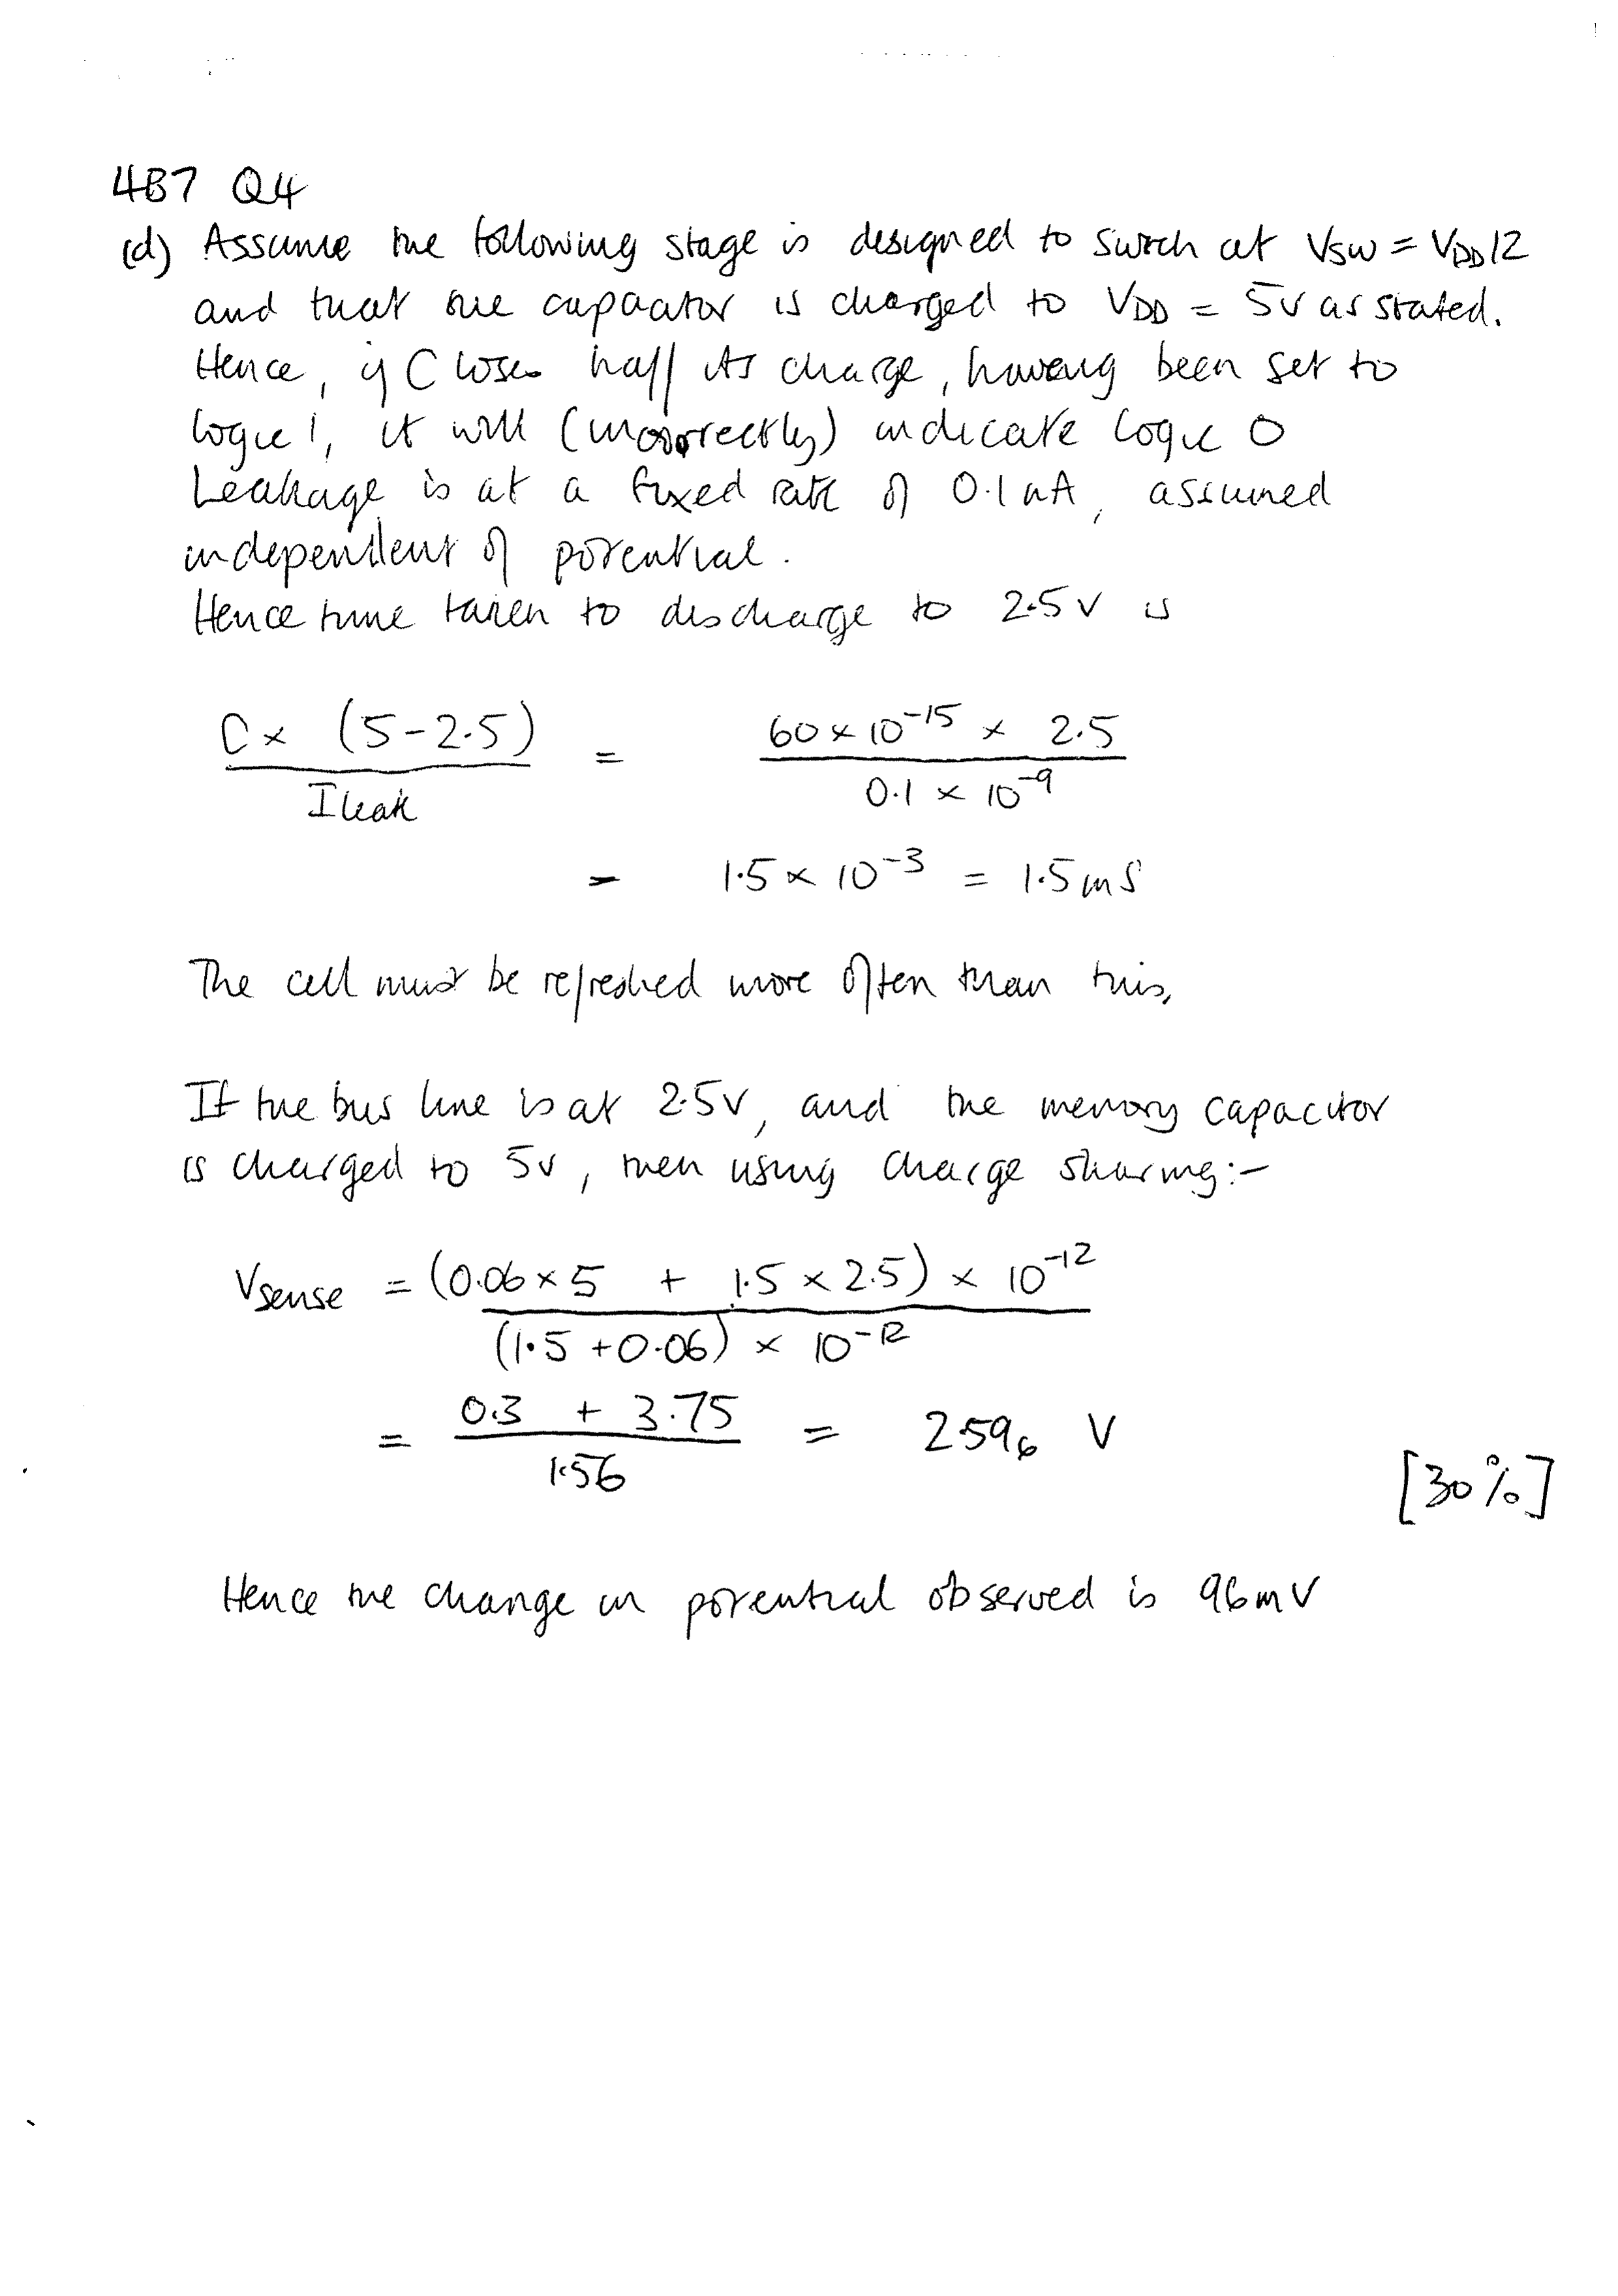 4B7 Q4
(d) Assume the following stage is designed to switch at VSW = VDD/2
and that the capacitor is charged to VDD = 5V as stated.
Hence, if C loses half its charge, having been set to
logic 1, it will (incorrectly) indicate logic 0
Leakage is at a fixed rate of 0.1nA, assumed
independent of potential.
Hence time taken to discharge to 2.5V is
C × (5-2.5) / Ileak = 60 × 10^-15 × 2.5 / 0.1 × 10^-9
= 1.5 × 10^-3 = 1.5mS
The cell must be refreshed more often than this,
If the bus line is at 2.5V, and the memory capacitor
is charged to 5V, then using charge sharing:-
Vsense = (0.06 × 5 + 1.5 × 2.5) × 10^-12 / (1.5 + 0.06) × 10^-12
= 0.3 + 3.75 / 1.56 = 2.596 V
[30%]
Hence the change in potential observed is 96mV